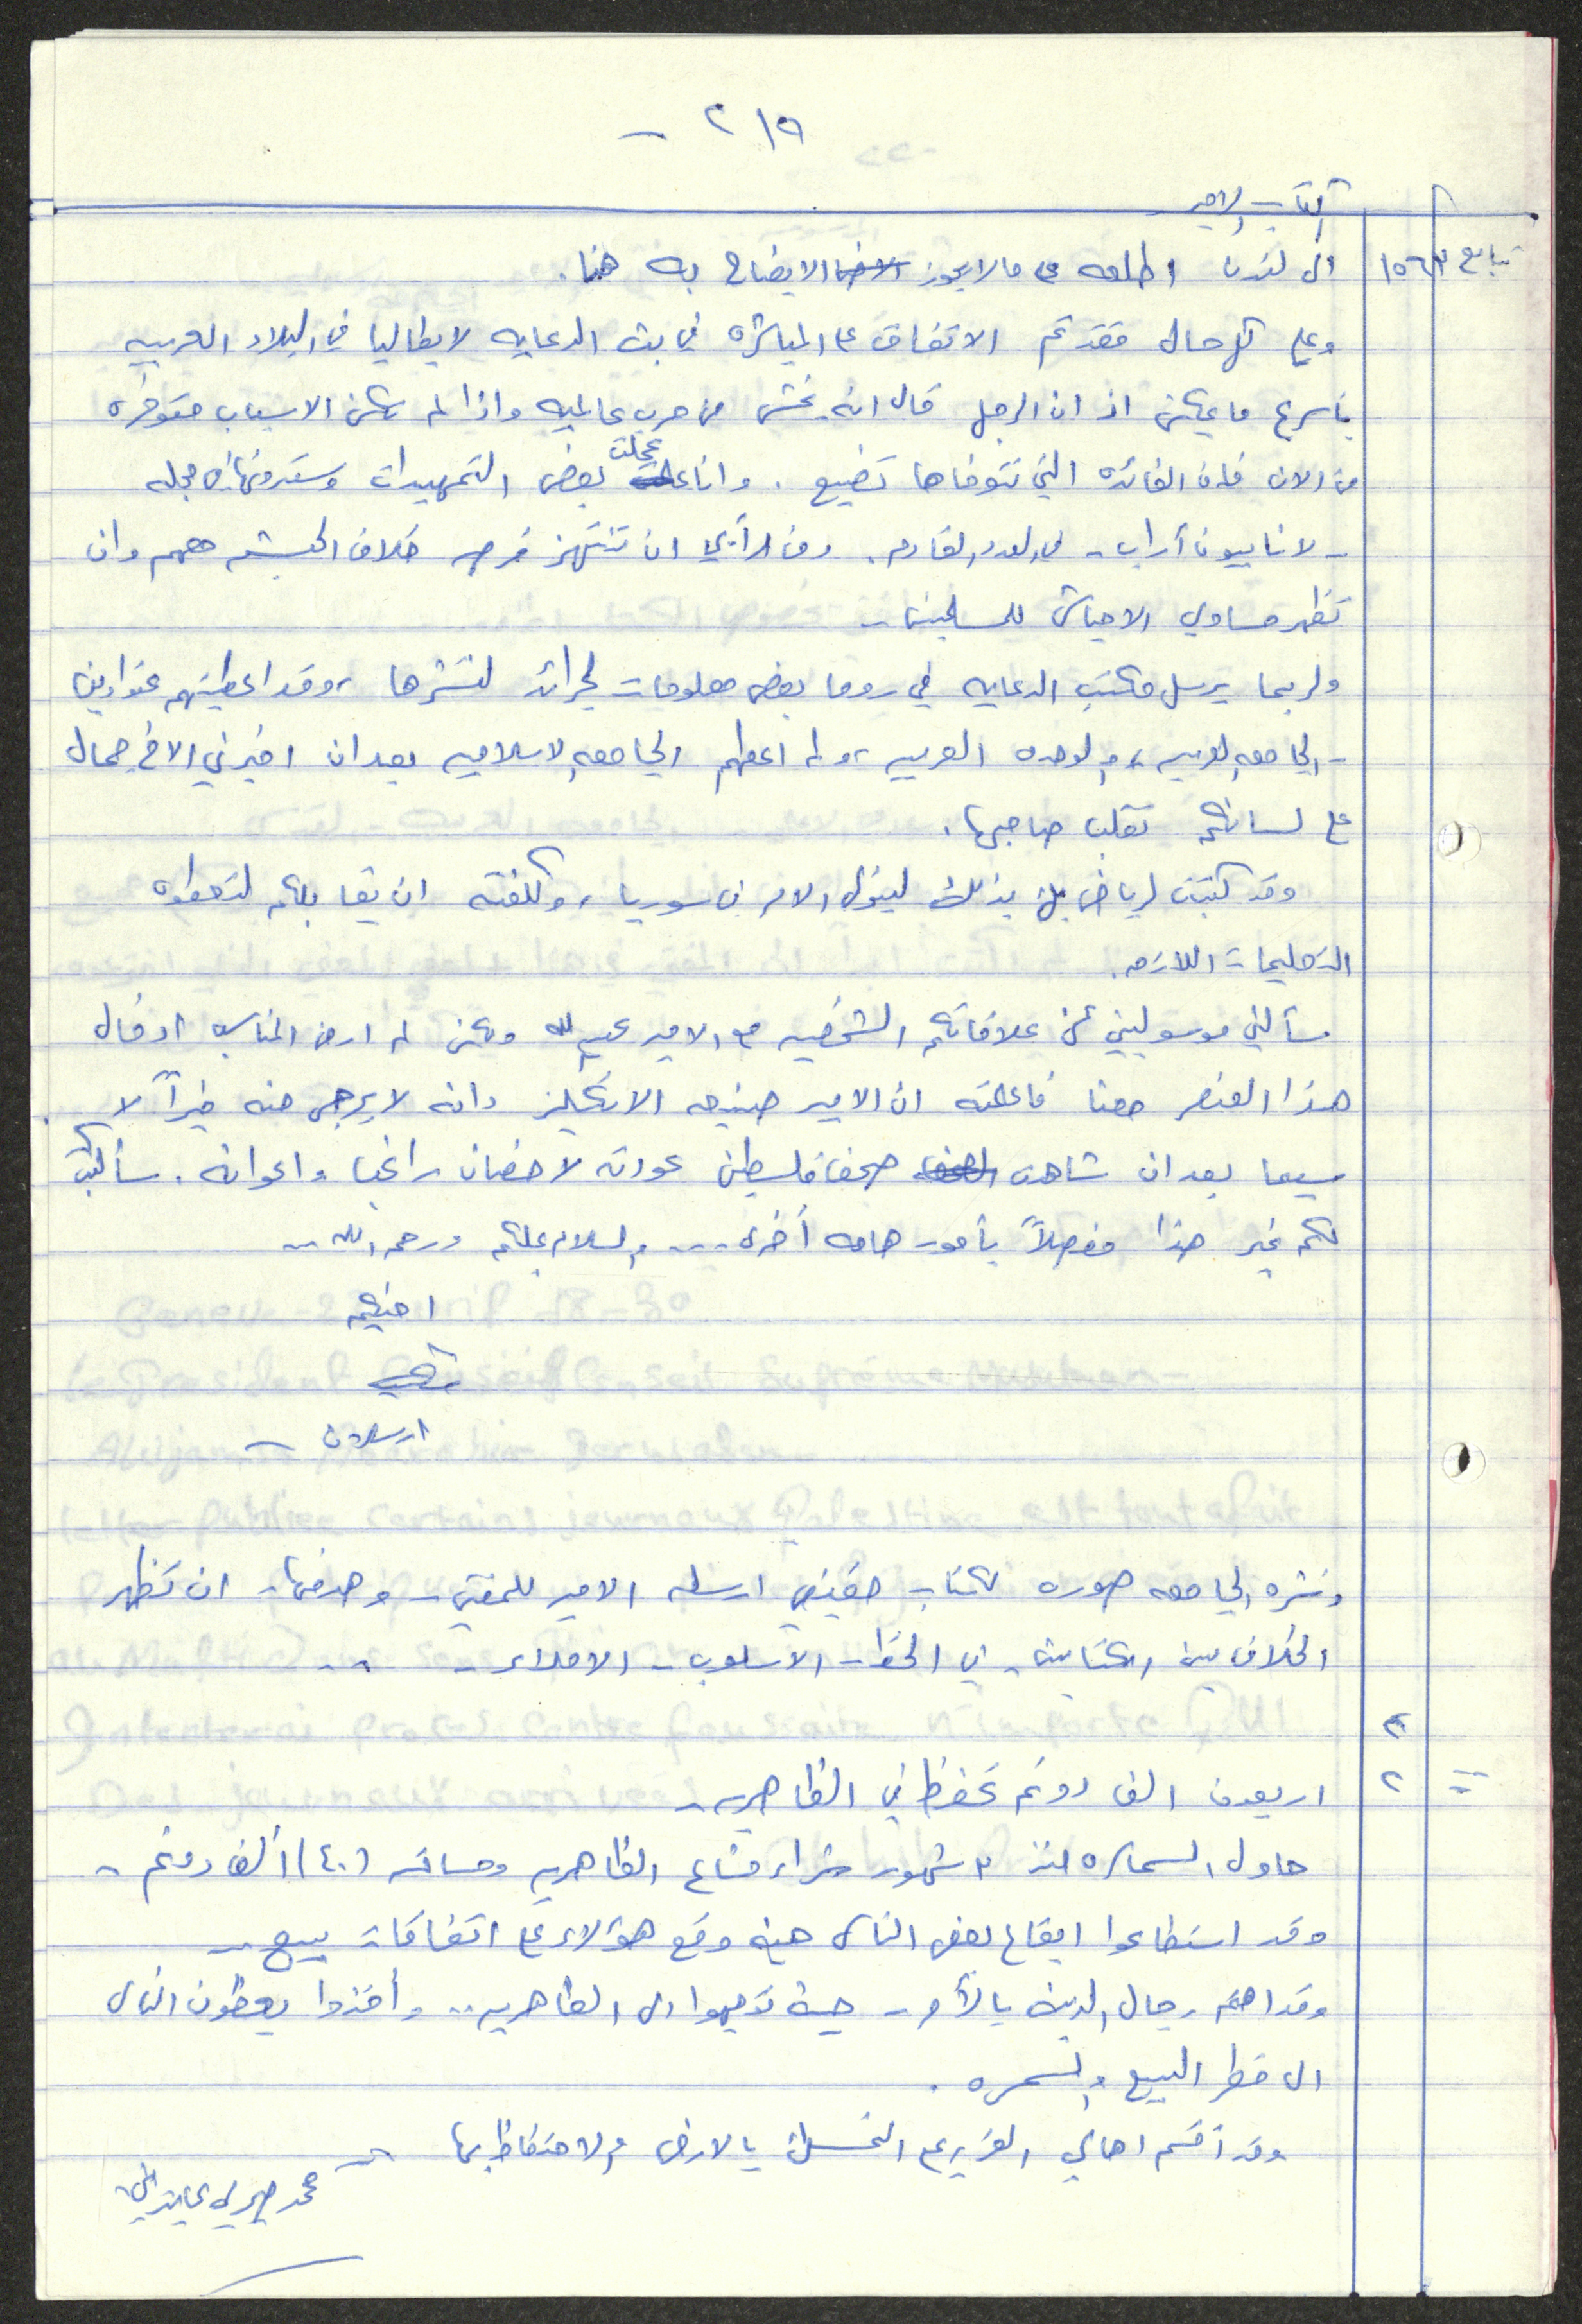 - ٢١٩
كتاب الامير
تابع ١٥٦٢
الى لندن اطلعه على ما لا يجوز الايضاح به هنا.
وعلى كل حال فقد تم الاتفاق على المباشره في بث الدعايه لايطاليا في البلاد العربيه
باسرع ما يمكن اذ ان الرجل قال انه يخشى من حرب عالميه واذا لم تكن الاسباب متوفره
من الان فان الفائده التي نتوخاها تضيع. وانا عجلت بعض التمهيدات وسترونها في مجله
- لاناسيون آراب - في العدد القادم. ومن الرأي ان تنتهز فرصه خلاف الحبشه معهم وان
تظهر مساوئ الاحباش للمسلمين -
ولربما يرسل مكتب الدعايه في روما بعض معلومات لجرائد لنشرها، وقد اعطيتهم عنوانين
- الجامعه العربيه، والوحده العربيه، ولم اعطهم الجامعه الاسلاميه بعد ان اخبرني الاخ جمال
على لسانكم تقلب صاحبها.
وقد كتبت لرياض بك بذلك ليتولى الامر في سوريا، وكلفته ان يقابلكم لتعطوه
التعليمات اللازمه.
سألني موسوليني عن علاقاتكم الشخصيه مع الامير عبدالله ولكن لم ار من المناسب ادخال
هذا العنصر معنا فاعلمته ان الامير صنيعه الانكليز وانه لا يرجى منه خيراً لا
سيما بعد ان شاهدت صحف فلسطين عودته لاحضان راغب واعوانه. سأكتب
لكم غير هذا مفصلاً بأمور هامه أخرى... والسلام عليكم ورحمه الله -
اخيكم
شكيب
ارسلان -
ونشره الجامعه صوره لكتاب حقيقي ارسله الامير للمفتي - وهدفها - ان تظهر
الخلاف بين الكتابين - في الخط - الاسلوب - الاملاء - ..
٢
= ٢ اربعون الف دونم تحفظ في الظاهريه -
حاول السماسره منذ ٣ شهور شراء مشاع الظاهريه ومساحته (٤٠) ألف دونم -
وقد استطاعوا ايقاع بعض الناس حيث وقع هؤلاء على اتفاقات بيع -
وقد اهتم رجال الدين بالأمر - حيث توجهوا الى الظاهريه .. وأخذوا يعظون الناس
الى خطر البيع والسمسره.
وقد أقسم اهالي القريه على التمسك بالارض والاحتفاظ بها -
محمد صبري عابدين